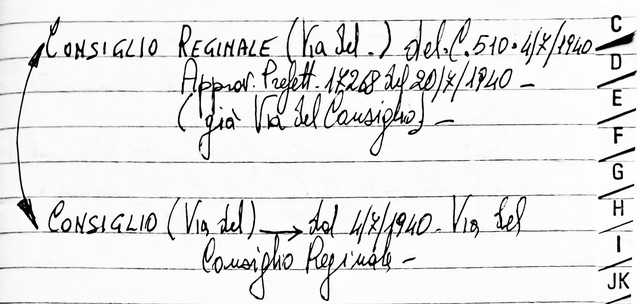 CONSIGLIO REGINALE (Via del.) del.C.510.4/7/1940
Approv. Prefett. 17268 del 20/7/1940 -
(già Via del Consiglio) -
CONSIGLIO (Via del) → dal 4/7/1940. Via del
Consiglio Reginale -
C
D
E
F
G
H
I
JK